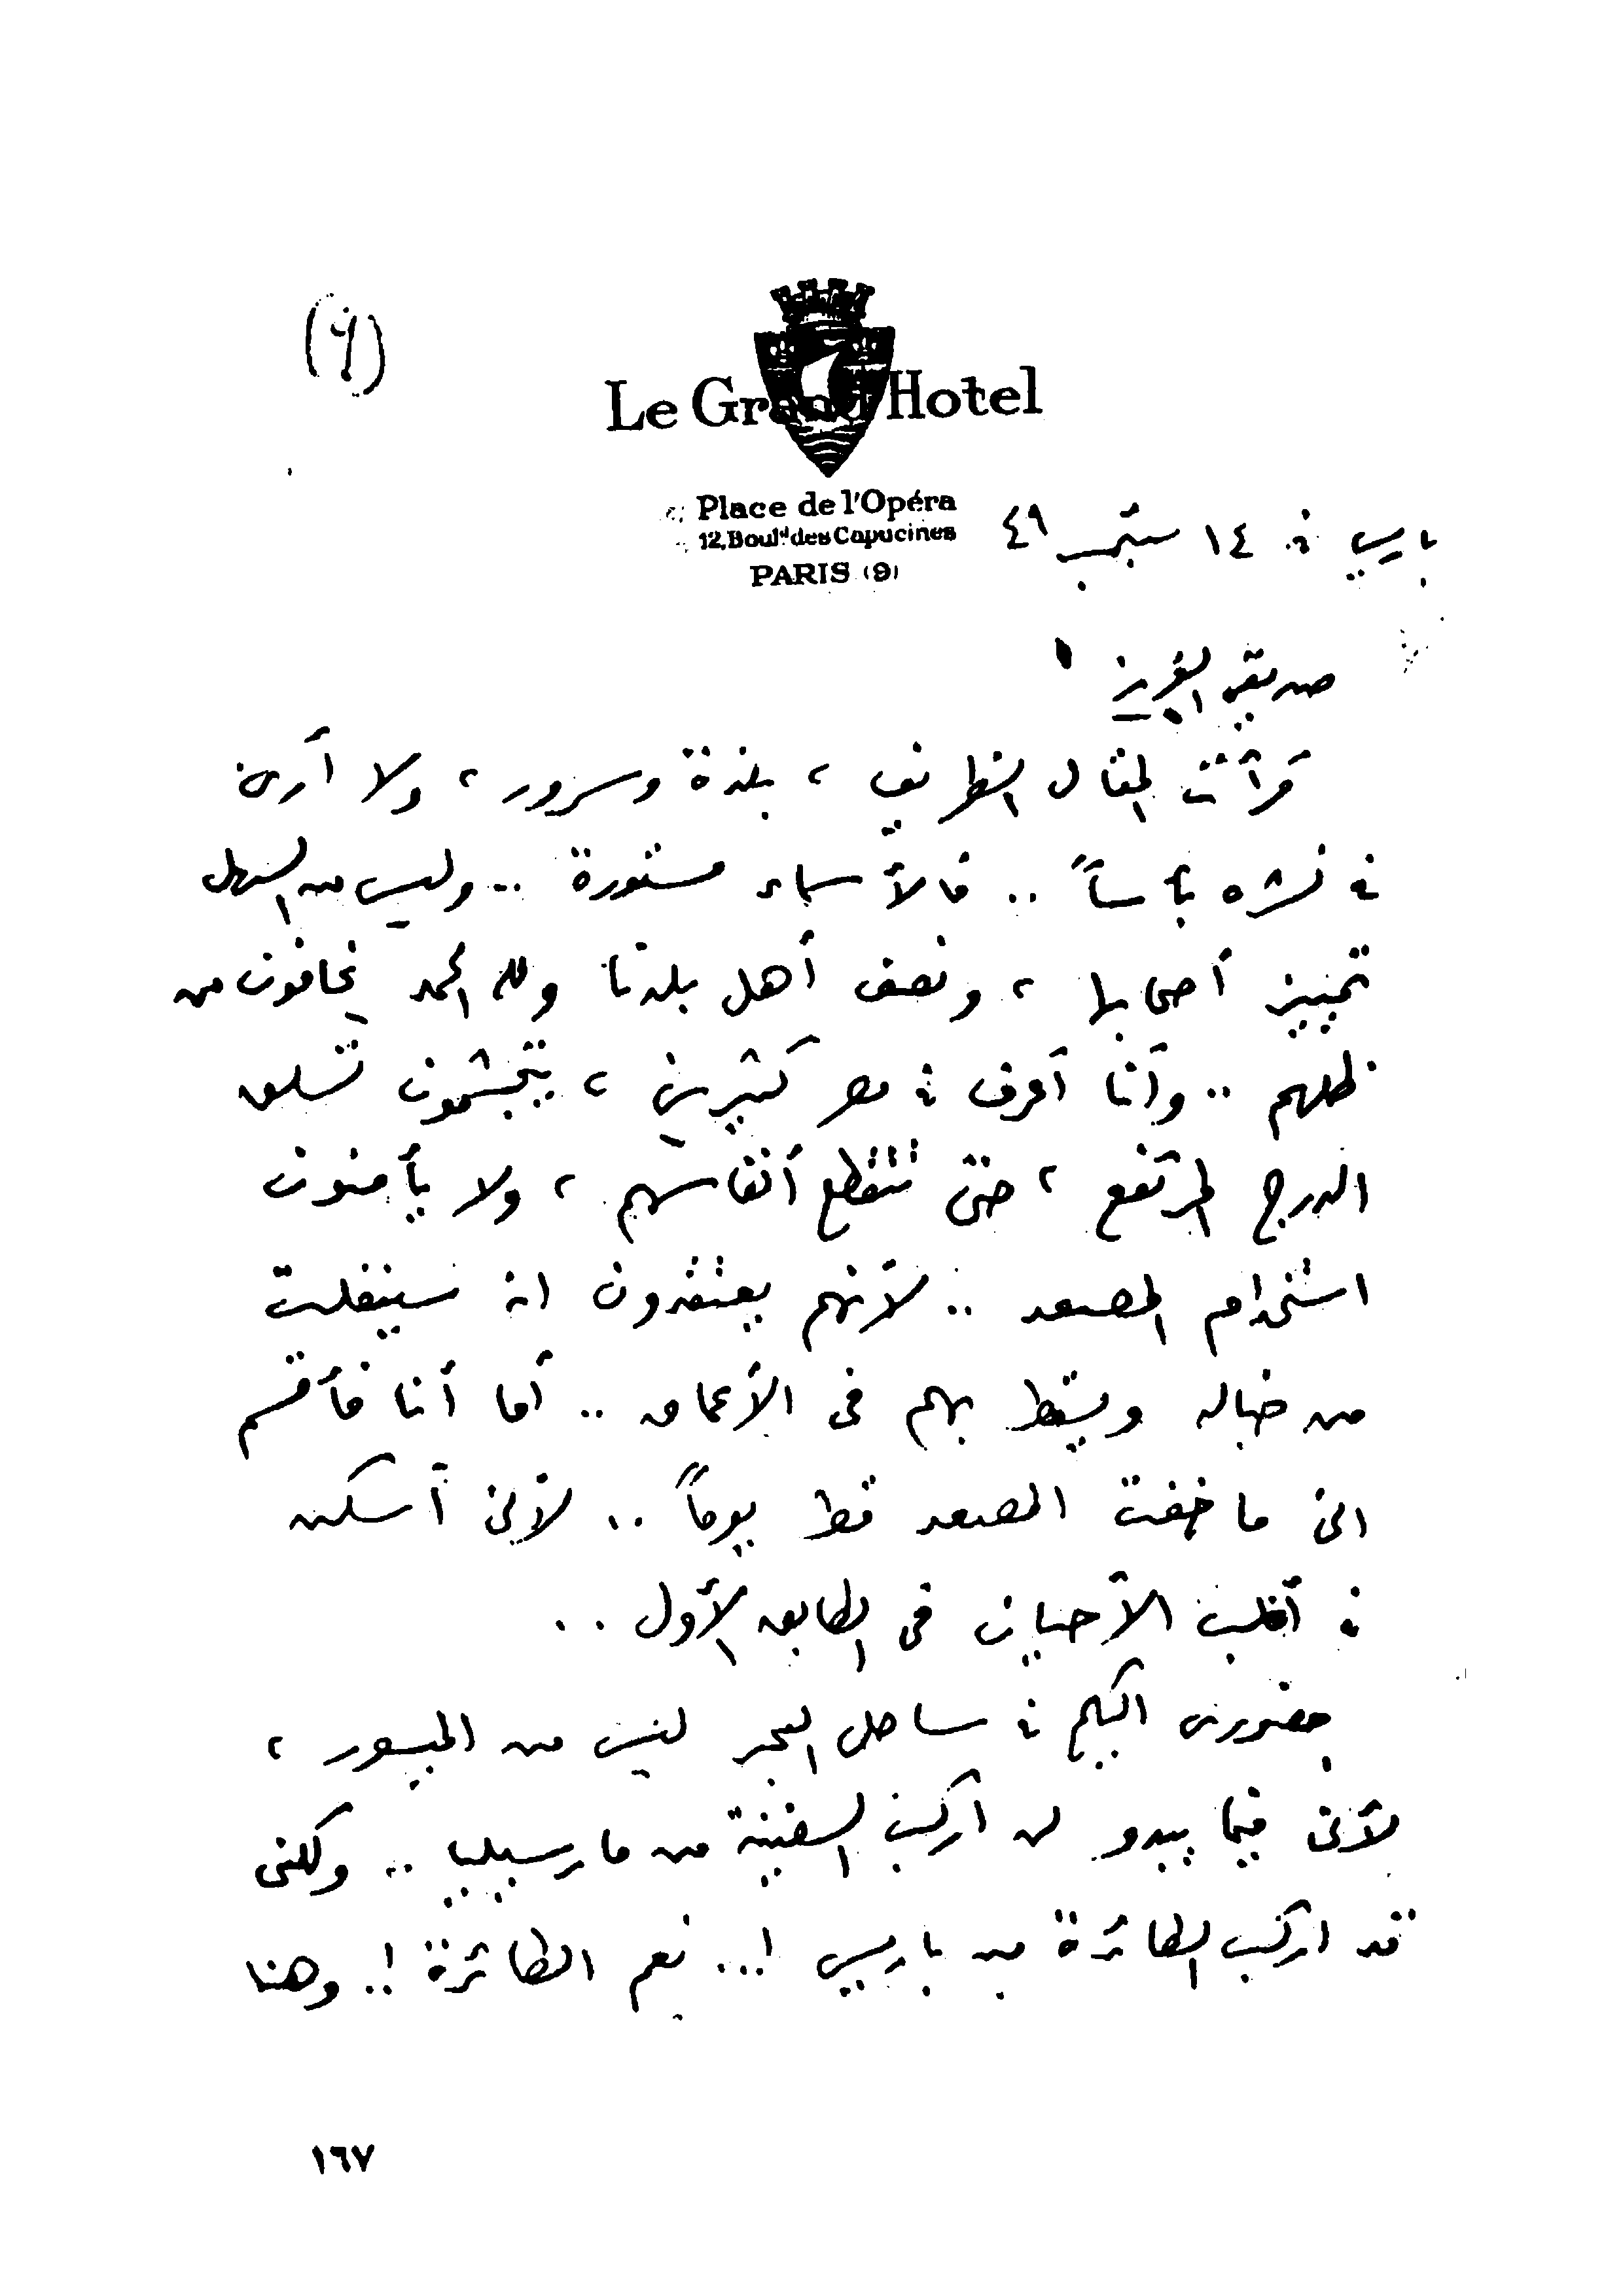 (٩)
Le Grand Hotel
Place de l'Opéra
12, Boul.d des Capucines
PARIS (9)
باريس في ١٤ سبتمبر ٤٩
صديقي العزيز
قرأت المقال الظريف ، بلذة وسرور ، ولا أرى
في نشره بأساً .. فالأسماء مستورة .. وليس من السهل
تمييز أصحابها ، ونصف أهل بلدنا ولله الحمد يخافون من
ظلهم .. وأنا أعرف في مصر كثيرين ، يتجشمون تسلق
الدرج المرتفع ، حتى تتقطع أنفاسهم ، ولا يأمنون
استخدام المصعد .. لأنهم يعتقدون انه سينفلت
من حباله ويسقط بهم في الأعماق .. أما أنا فأقسم
انى ما خفت المصعد قط يوماً .. لأنى أسكن
في أغلب الأحيان في الطابق الأول ..
حضورى اليكم في ساحل البحر ليس من الميسور ،
لأنى فيما يبدو لن اركب السفينة من مارسيليا .. ولكنى
قد اركب الطائرة من باريس !... نعم الطائرة !.. وهنا
١٦٧